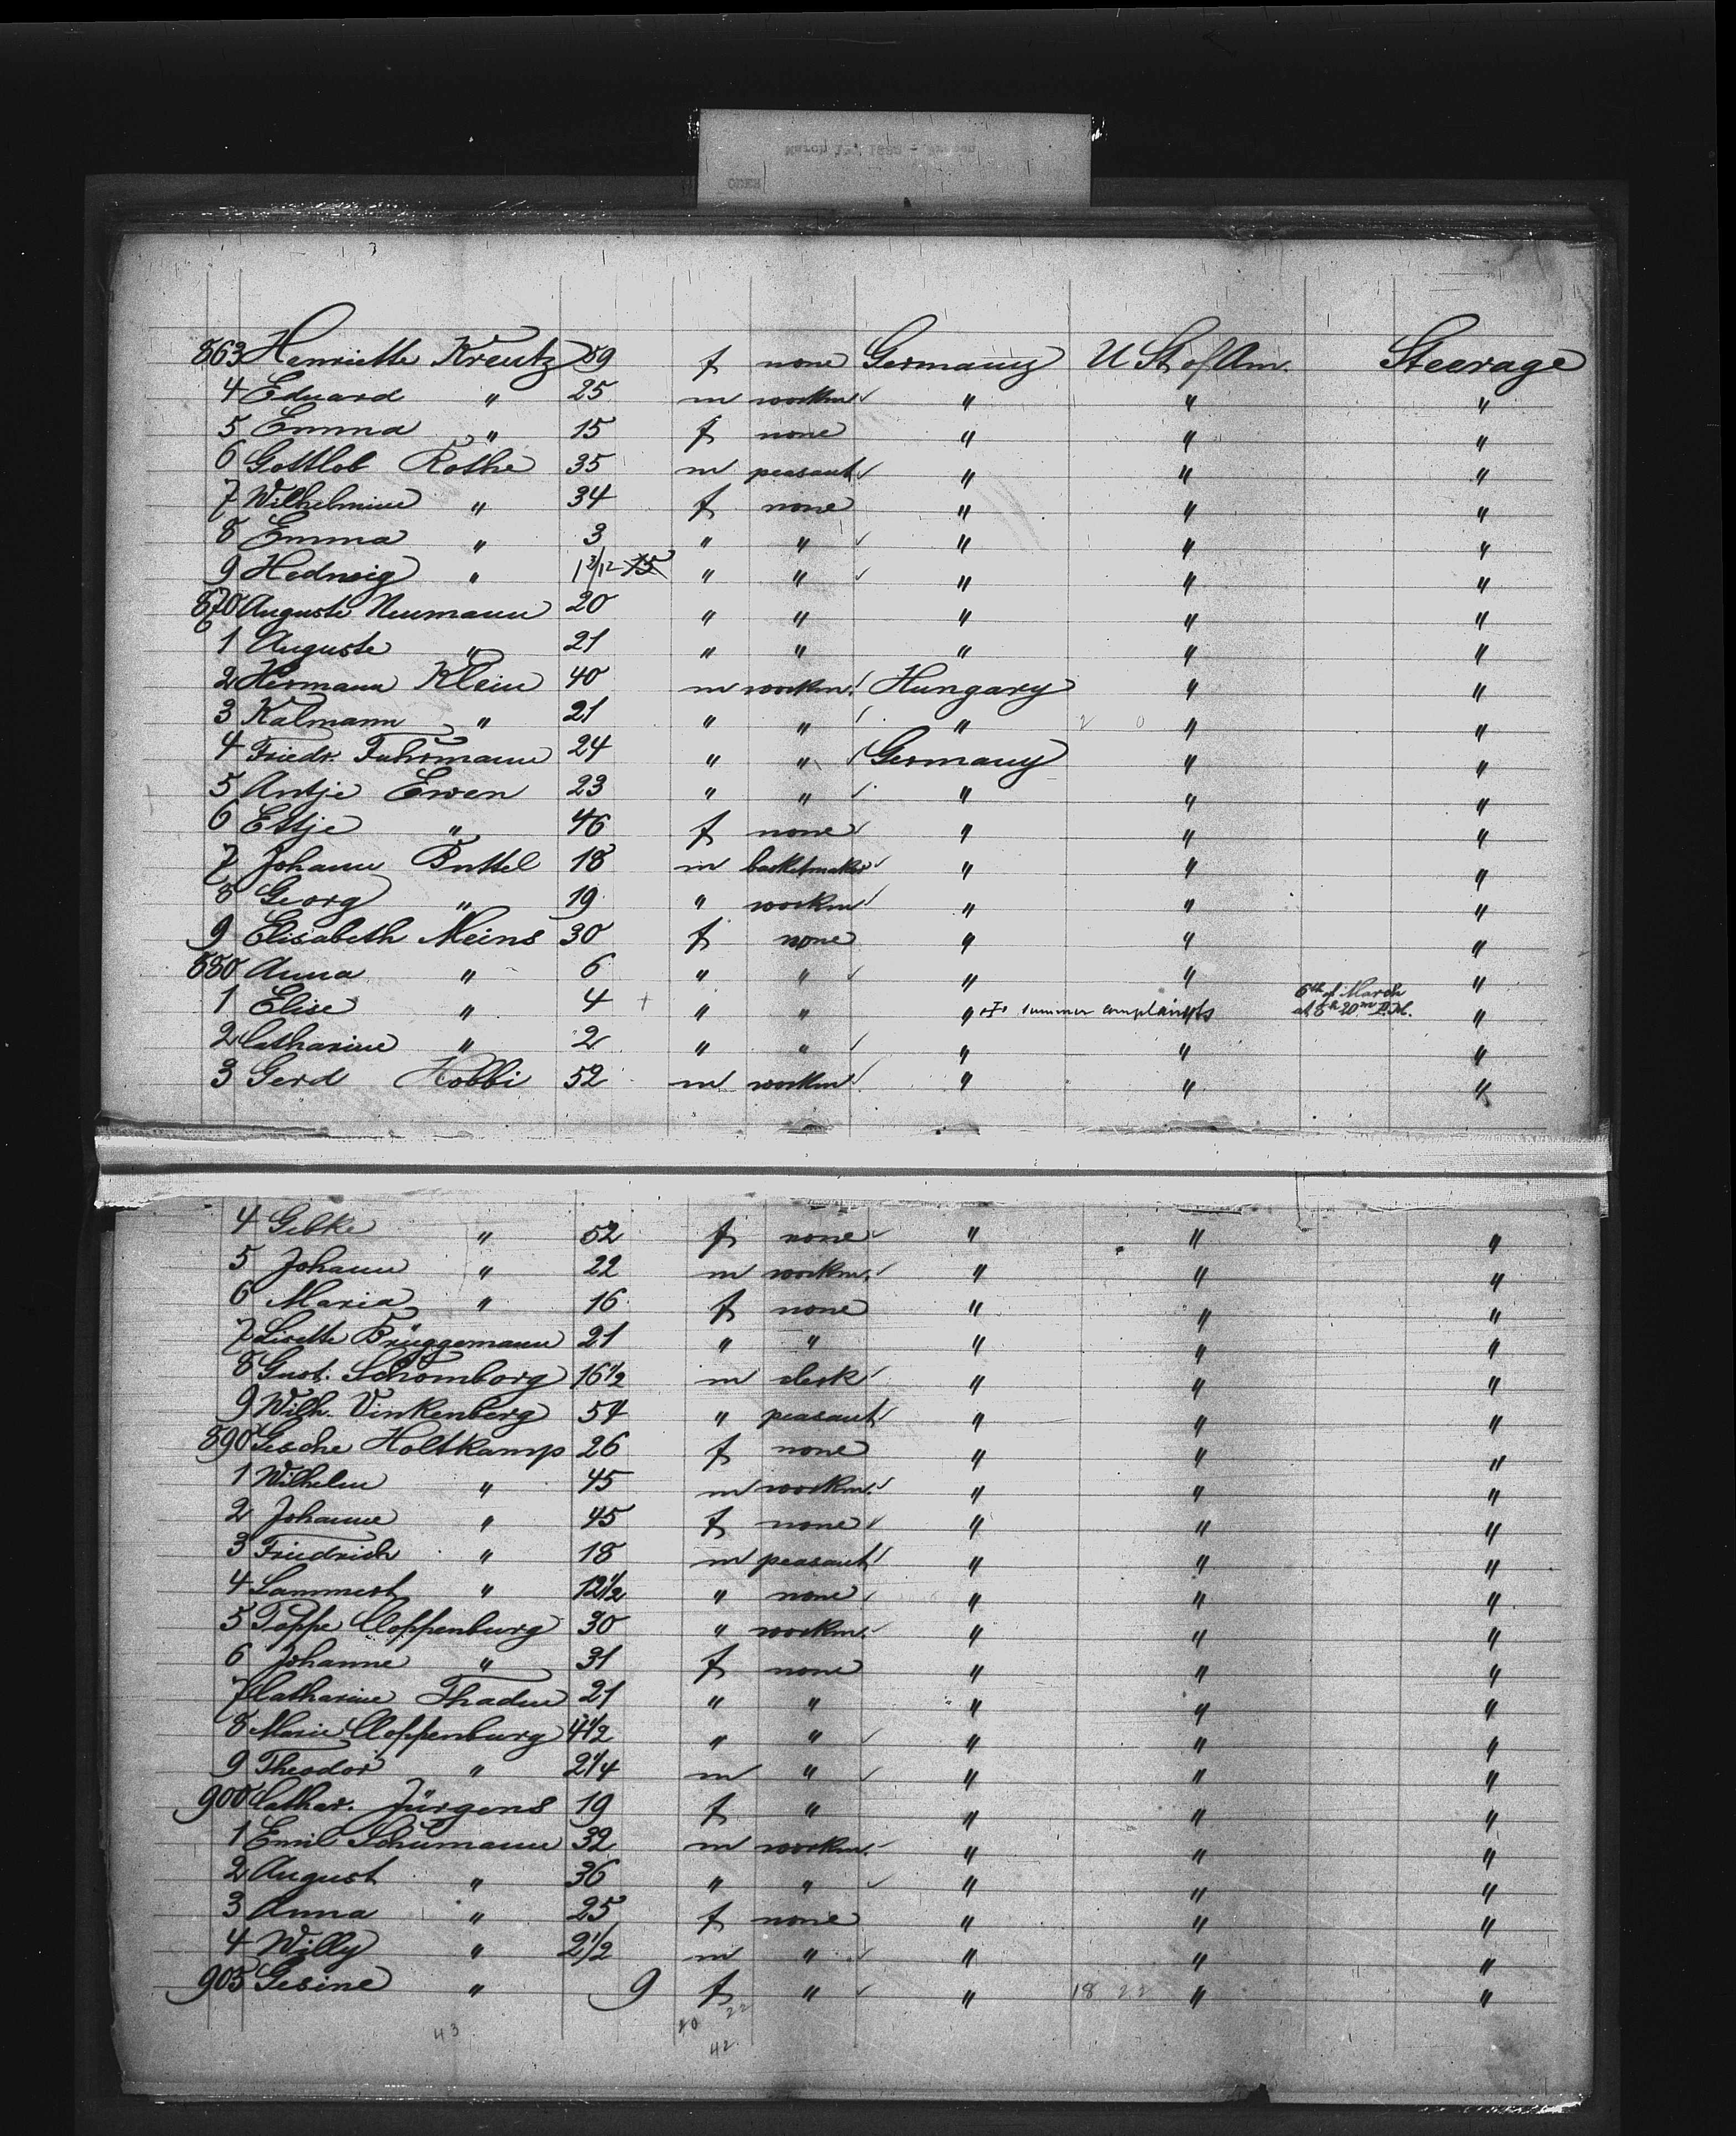 863 Henriette Kreutz 59 f none Germany U St of Am. Steerage
4 Eduard " 25 m workm " " "
5 Emma " 15 f none " " "
6 Gottlob Rothe 35 m peasant " " "
7 Wilhelmine " 34 f none " " "
8 Emma " 3 " " " " "
9 Hedwig " 1 3/12 15 " " " " "
870 Auguste Neumann 20 " " " " "
1 Auguste " 21 " " " " "
2 Hermann Klein 40 m workm. Hungary " "
3 Kalmann " 21 " " " " "
4 Friedr. Fuhrmann 24 " " Germany " "
5 Antje Ewen 23 " " " " "
6 Ettje " 46 f none " " "
7 Johann Buttel 18 m basketmaker " " "
8 Georg " 19 " workm " " "
9 Elisabeth Meins 30 f none " " "
880 Anna " 6 " " " " "
1 Elise " 4 + " " " + summer complaints " 6th of March at 8h 20m P.M. "
2 Catharine " 2 " " " " "
3 Gerd Hobbi 52 m workm " " "
4 Gebke " 52 f none " " "
5 Johann " 22 m workm. " " "
6 Maria " 16 f none " " "
7 Lisette Brüggemann 21 " " " " "
8 Gust. Schomborg 16 1/2 m clerk " " "
9 Wilh. Vinkenberg 54 " peasant " " "
890 Gesche Holtkamp 26 f none " " "
1 Wilhelm " 45 m workm. " " "
2 Johanne " 45 f none " " "
3 Friedrich " 18 m peasant " " "
4 Lammert " 12 1/2 " none " " "
5 Poppe Cloppenburg 30 " workm. " " "
6 Johanne " 31 f none " " "
7 Catharine Thaden 21 " " " " "
8 Marie Cloppenburg 4 1/2 " " " " "
9 Theodor " 2 1/4 m " " " "
900 Cathar. Jürgens 19 f " " " "
1 Emil Schumann 32 m workm. " " "
2 August " 36 " " " " "
3 Anna " 25 f none " " "
4 Willy " 2 1/2 m " " " "
905 Gesine " 9 f " " 18 22 " "
43 20 22
42